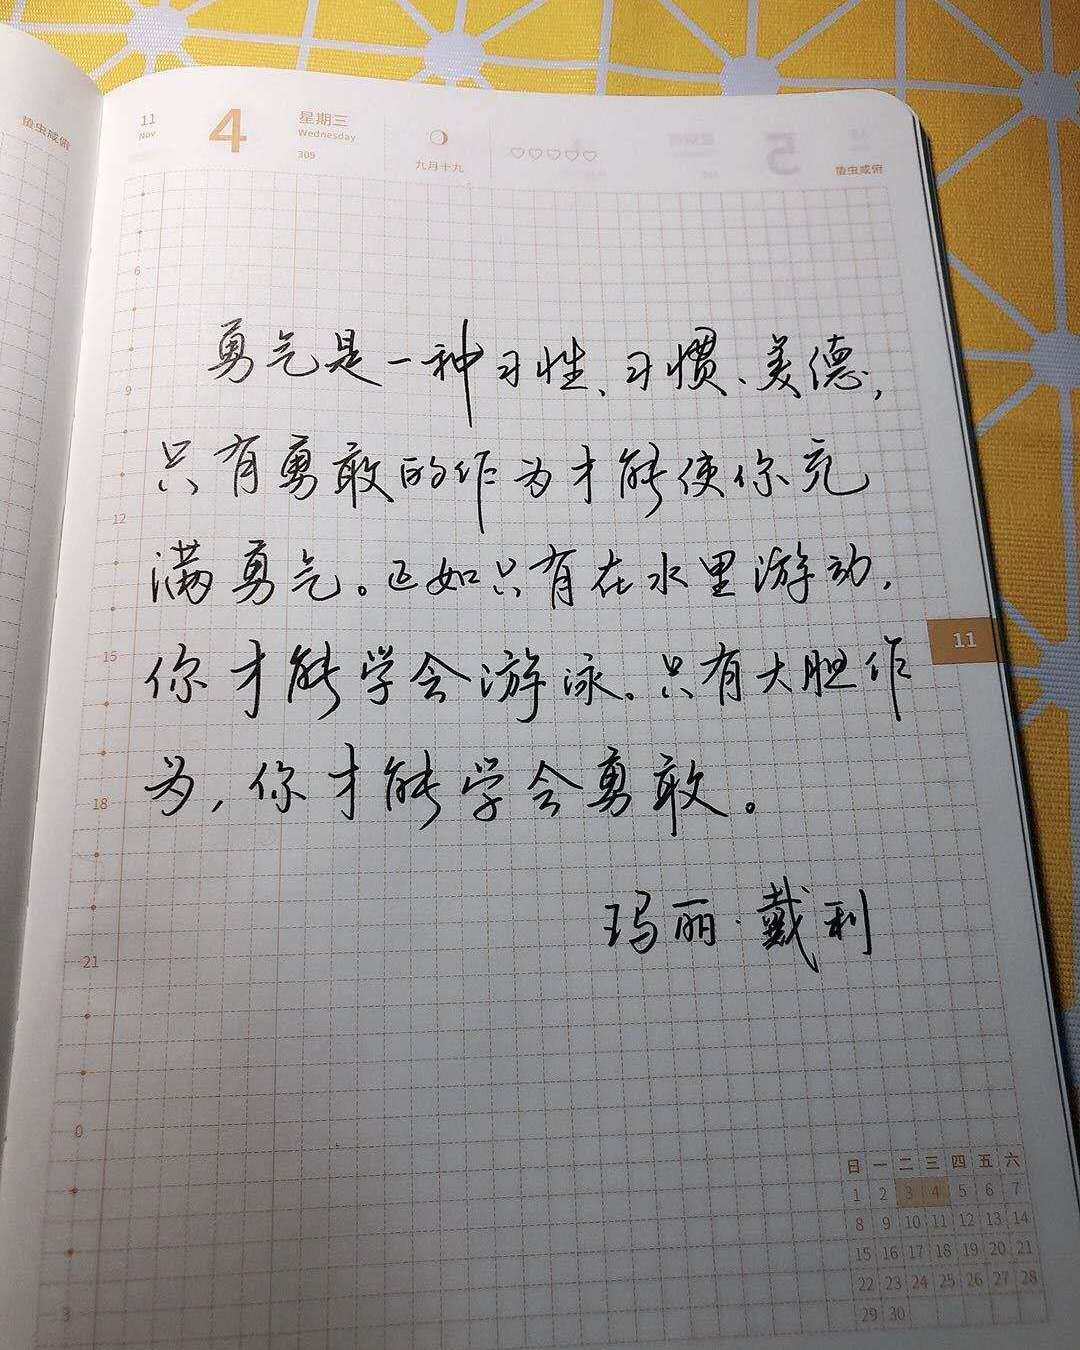 蛰虫咸俯
11
Nov
4
星期三
Wednesday
309
九月十九
蛰虫咸俯
6
9
12
15
18
21
0
3
勇气是一种习性、习惯、美德,
只有勇敢的作为才能使你充
满勇气。正如只有在水里游动,
你才能学会游泳。只有大胆作
为,你才能学会勇敢。
玛丽·戴利
11
日 一 二 三 四 五 六
1 2 3 4 5 6 7
8 9 10 11 12 13 14
15 16 17 18 19 20 21
22 23 24 25 26 27 28
29 30